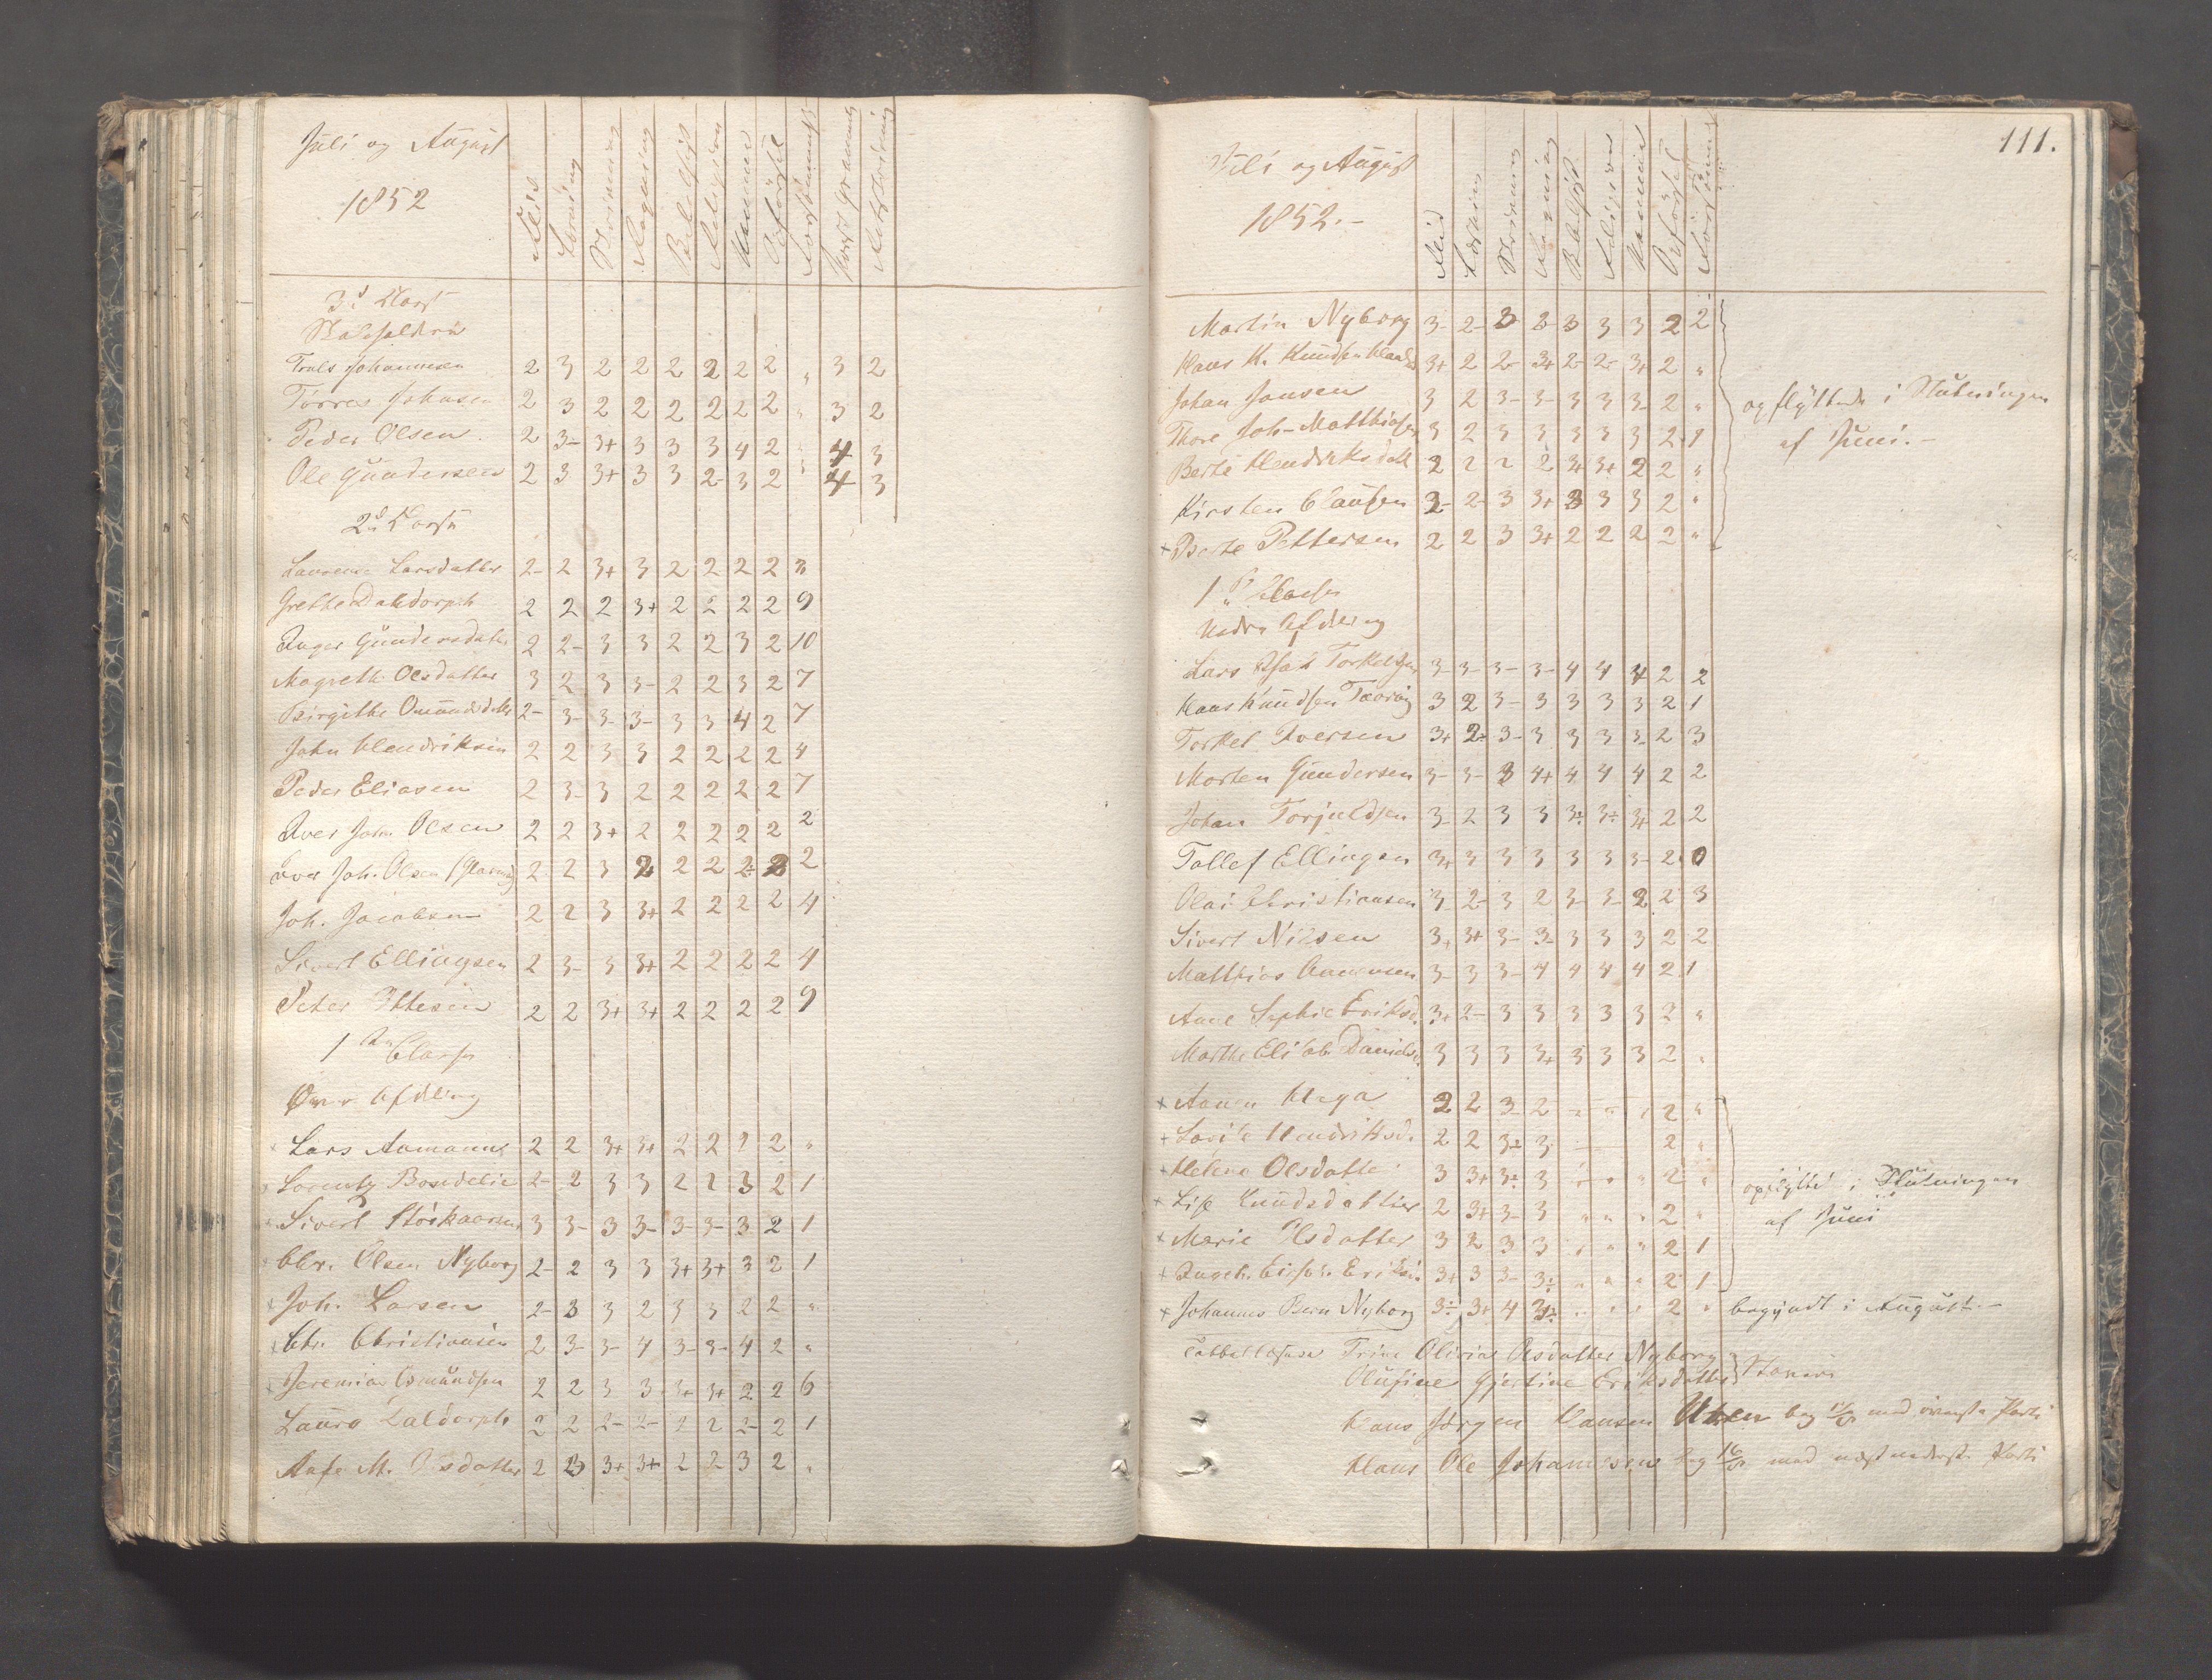 Juli og August
1852
Flid
Læsning
Skrivning
Regning
Religion
Opførsel
3d Klasse
Johannesen 2 3 2 2 2 2 2 2 " 3 2
Tørres Johnsen 2 3 2 2 2 2 2 2 " 3 2
Peder Olsen 2 3- 3+ 3 3 3 4 2 " 4 3
Ole Gundersen 2 3 3+ 3 3 2- 3 2 " 4 3
2d Klasse
Larsdatter 2- 2 3+ 3 2 2 2 2
Grethe Daldorph 2 2 2 3+ 2 2 2 2 9
Inger Gundersdatter 2 2- 3 3 2 2 3 2 10
Magrethe Olsdatter 3 2 3 3- 2 2 3 2 7
Birgithe Omundsdatter 2- 3- 3- 3- 3 3 4 2 7
John Hendriksen 2 2 3 3 2 2 2 2 4
Peder Eliasen 2 3- 3 2 2 2 2 2 7
Iver Joh. Olsen 2 2 3+ 2 2 2 2 2 2
Iver Joh. Olsen 2 2 3 2 2 2 2- 2 2
Joh. Jacobsen 2 2 3 3+ 2 2 2 2 4
Sivert Ellingsen 2 3- 3 3+ 2 2 2 2 4
Peter Ottesen 2 2 3+ 3+ 2 2 2 2 9
1ste Classe
Øvre Afdeling
Lars Aamann 2 2 3+ 3+ 2 2 2 2 "
Lorentz 2- 2 3 3 2 2 3 2 1
Sivert 3 3- 3 3- 3- 3- 3 2 1
Chr. Olsen Nyborg 2- 2 3 3 3+ 3+ 3 2 1
Joh. Larsen 2- 3 3 2 3 3 2 2 "
Chr. Christiansen 2 3- 3- 4 3- 3- 4 2 "
Jeremias Osmundsen 2 2 3 3 3+ 3+ 2 2 6
Laura Daldorph 2 2 2- 2- 2 2 2- 2 1
M. Olsdatter 2 3 3+ 3+ 2 2 3 2 "
111.
Juli og August
1852.-
Flid
Læsning
Skrivning
Regning
Religion
Opførsel
Martin Nyborg 3- 2- 3 3- 3 3 3 2 2
Hans K. Knudsen 3+ 2 2- 3+ 2- 2- 3+ 2 "
Johan Jansen 3 2 3- 3- 3 3 3- 2 "
opflyttede i Slutningen
Thore Joh. Matthiasen 3 2 3 3 3 3 3 2 1
af Juni.-
Berte Hendriksdatt 2 2 2 2 3+ 3+ 2 2 "
Kirsten Clausen 3- 2- 3 3+ 3 3 3 2 "
+ Berte Pettersen 2 2 3 3+ 2 2 2 2 "
1ste Classe
Nedre Afdeling
Lars Torkelsen 3- 3- 3- 3- 4 4 4 2 2
Hans Knudsen 3 2 3- 3 3 3 3 2 1
Torkel Iversen 3+ 2- 3- 3 3 3 3- 2 3
Morten Gundersen 3- 3- 3 4+ 4 4 4 2 2
Johan Torjuldsen 3- 2 3 3 3÷ 3÷ 3+ 2 2
Tollef Ellingsen 3+ 3 3 3 3 3 3- 2 0
Olai Christiansen 3- 2- 3 2 3- 3- 2 2 3
Sivert Nilsen 3+ 3+ 3- 3- 3 3 3 2 2
Matthias 3- 3 3- 4 4 4 4 2 1
Ane Sophie Eriksd. 3+ 2- 3 3 3 3 3 2 "
Marthe Elisab. Danielsd. 3 3 3 3+ 3 3 3 2 "
+ Anna 2 2 3- 2 " " " 2 "
+ Hendriksd. 2 2 3÷ 3 2 "
+ Helene Olsdatter 3 3+ 3÷ 3 " " " 2 "
opflyttet i Slutningen
+ Lise Knudsdatter 2 3+ 3- 3 " " " 2 "
af Juni
+ Marie Olsdatter 3 2 3 3 " " " 2 1
+ 3+ 3 3- 3÷ " " " 2 1
+ Johannes Bern Nyborg 3÷ 3+ 4 3÷ " " " 2 " begyndt i August.-
Trine Olivia Olsdatter Nyborg
Gjertine Eriksdatter
Hans Jørgen Hansen beg med øverste Parti
Hans Ole Johannesen beg med næstnederste Parti